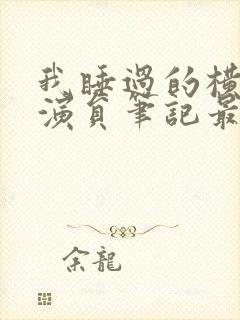 我睡過的橫
演員筆記最
余龍